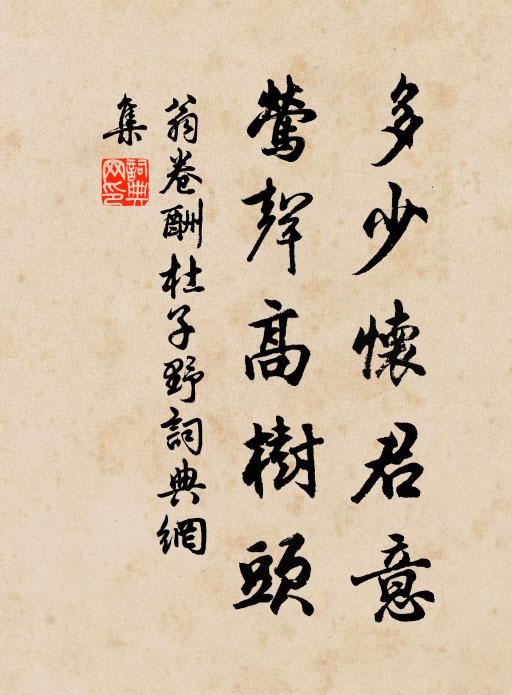 多少懷君意
鶯聲高樹頭
翁卷酬杜子野詞典網
集
詞典網印